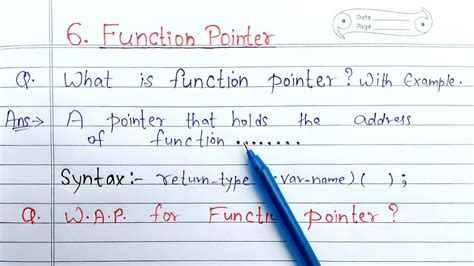 Date
Page
6. Function Pointer
Q. What is function pointer? With Example.
Ans:-> A pointer that holds the address
of function ........
Syntax:- return-type var-name) ( );
Q. W.A.P. for Function pointer?